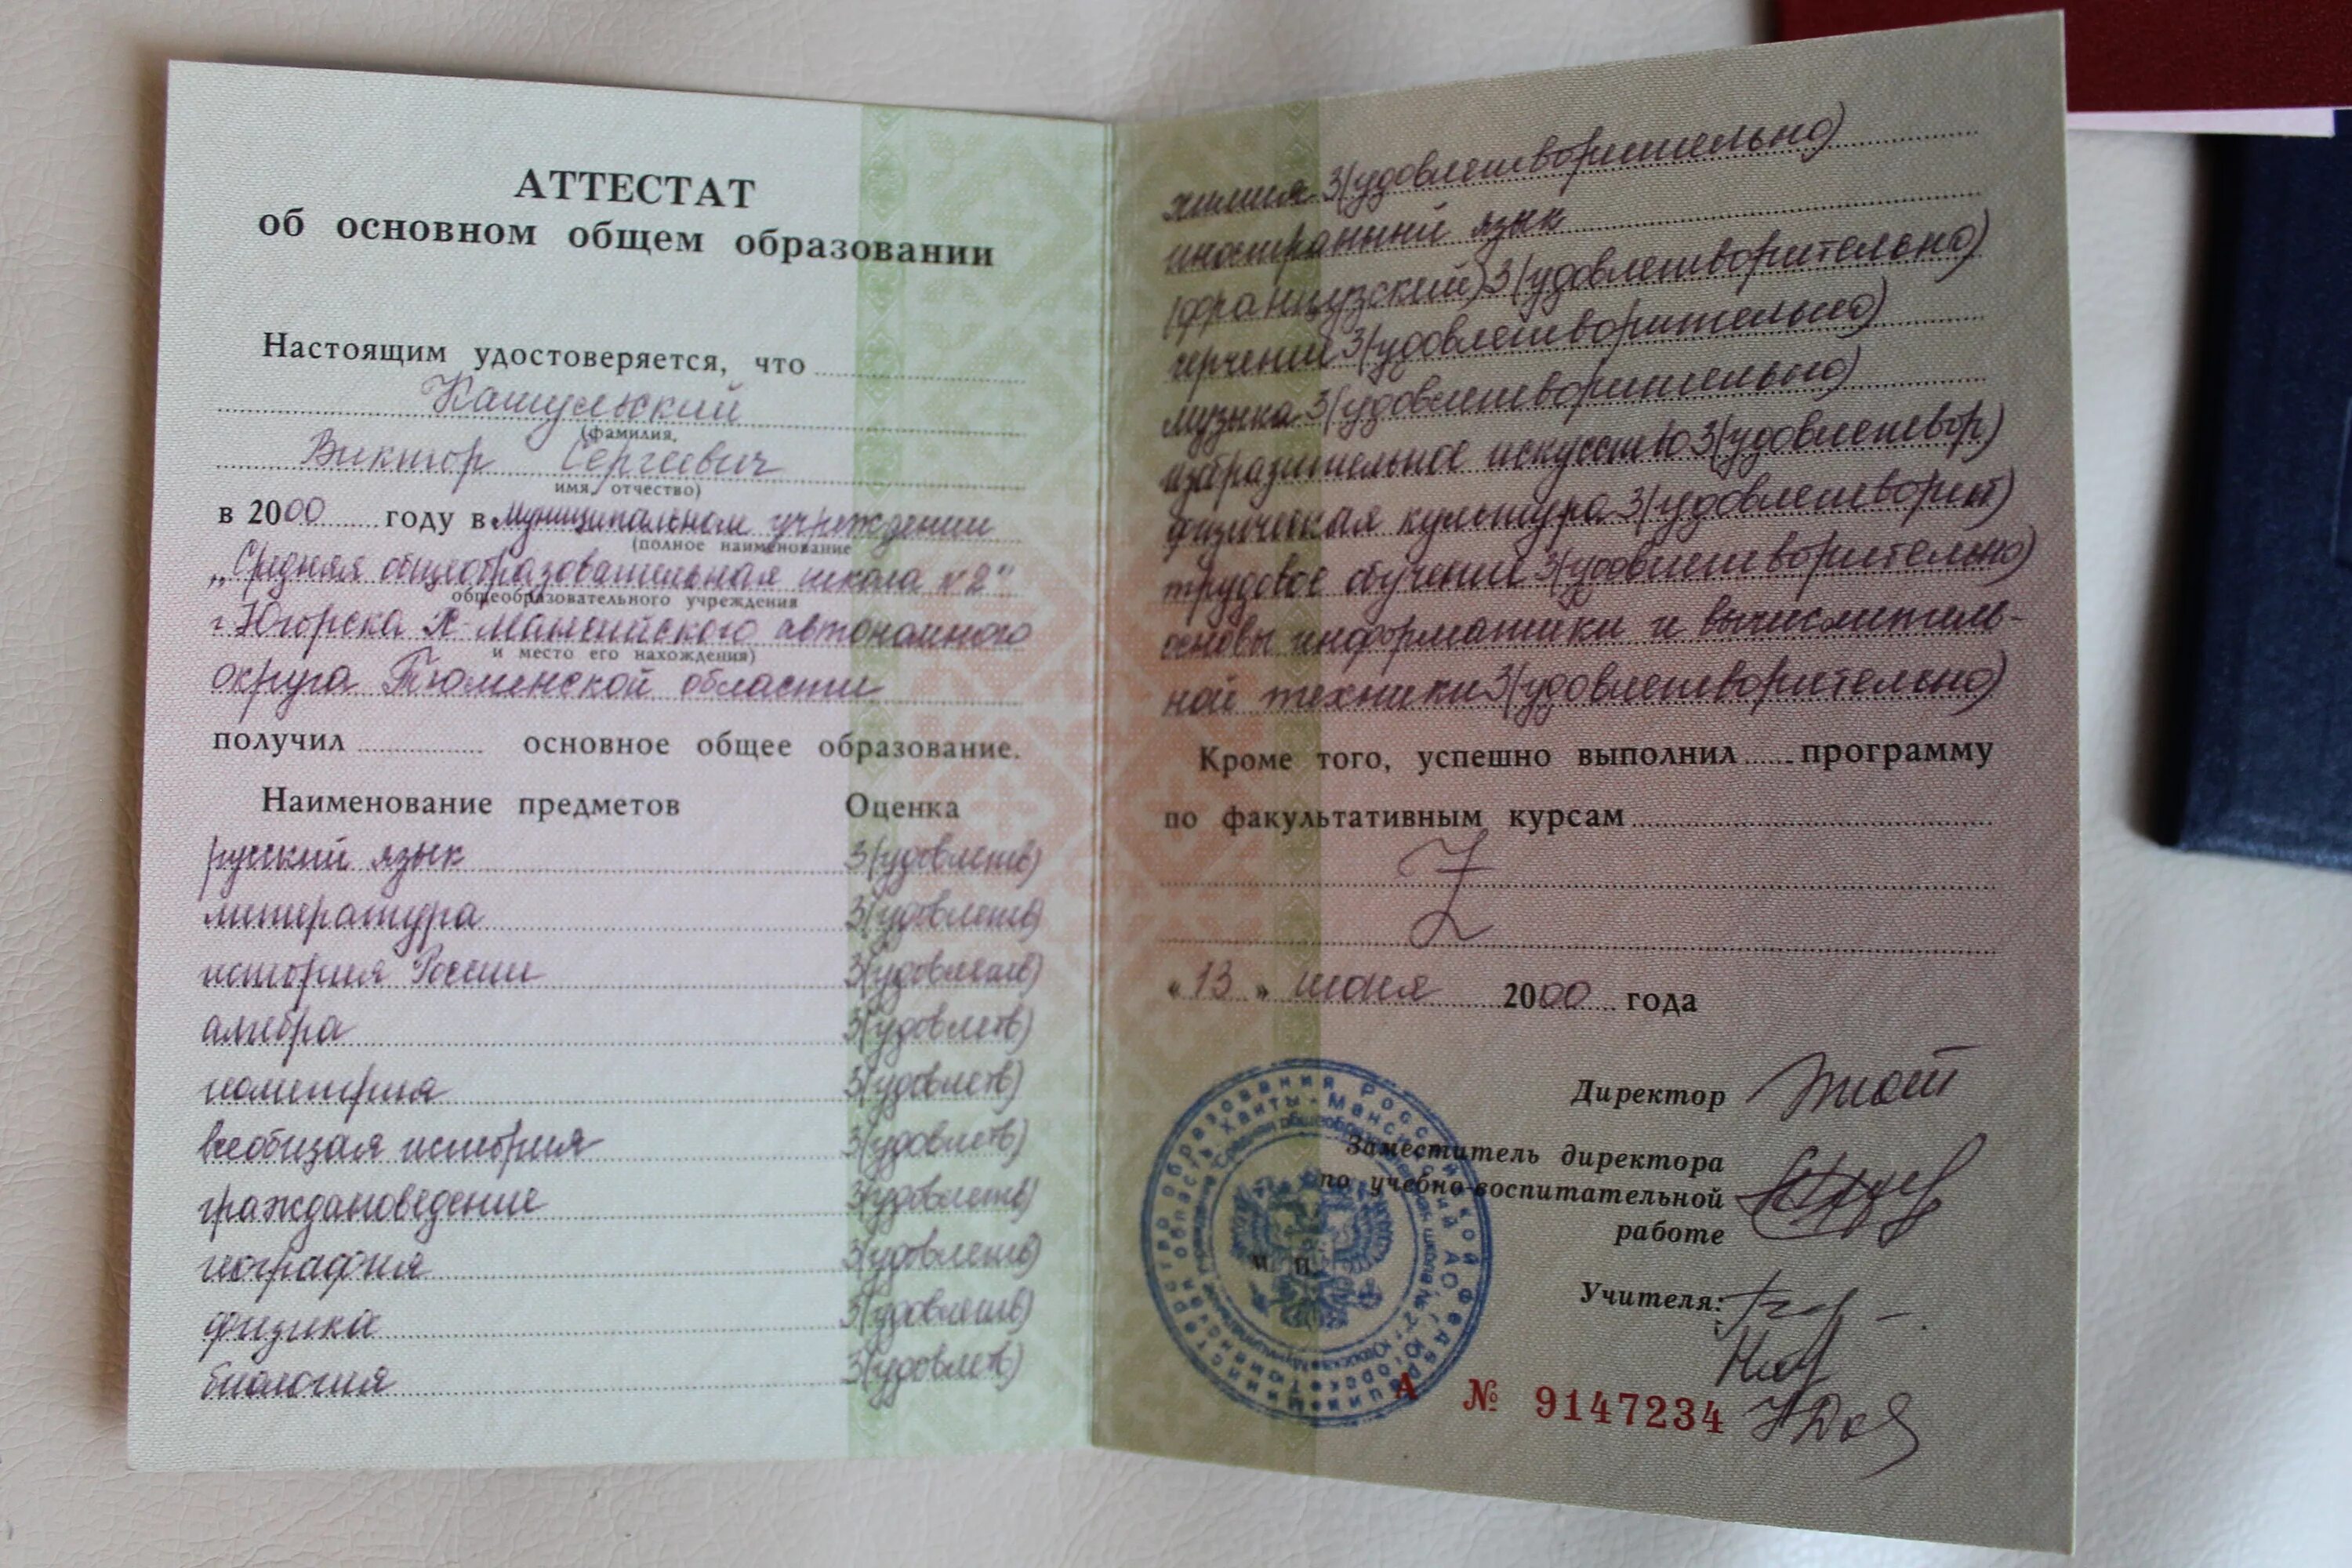 АТТЕСТАТ
об основном общем образовании
Настоящим удостоверяется, что
Кашульский
(фамилия,
Виктор Сергеевич
имя, отчество)
в 2000 году в муниципальном учреждении
(полное наименование
„Средняя общеобразовательная школа №2"
общеобразовательного учреждения
г. Югорска Х-Мансийского автономного
и место его нахождения)
округа Тюменской области
получил основное общее образование.
Наименование предметов Оценка
русский язык 3(удовлетв)
литература 3(удовлетв)
история России 3(удовлетв)
алгебра 3(удовлетв)
геометрия 3(удовлетв)
всеобщая история 3(удовлетв)
граждановедение 3(удовлетв)
география 3(удовлетв)
физика 3(удовлетв)
биология 3(удовлетв)
химия 3(удовлетворительно)
иностранный язык
(французский) 3(удовлетворительно)
черчение 3(удовлетворительно)
музыка 3(удовлетворительно)
изобразительное искусство 3(удовлетвор)
физическая культура 3(удовлетворит)
трудовое обучение 3(удовлетворительно)
основы информатики и вычислитель-
ной техники 3(удовлетворительно)
Кроме того, успешно выполнил программу
по факультативным курсам
Z
« 13 » июня 2000 года
Директор
Заместитель директора
по учебно-воспитательной
работе
М. П.
Учителя:
А № 9147234